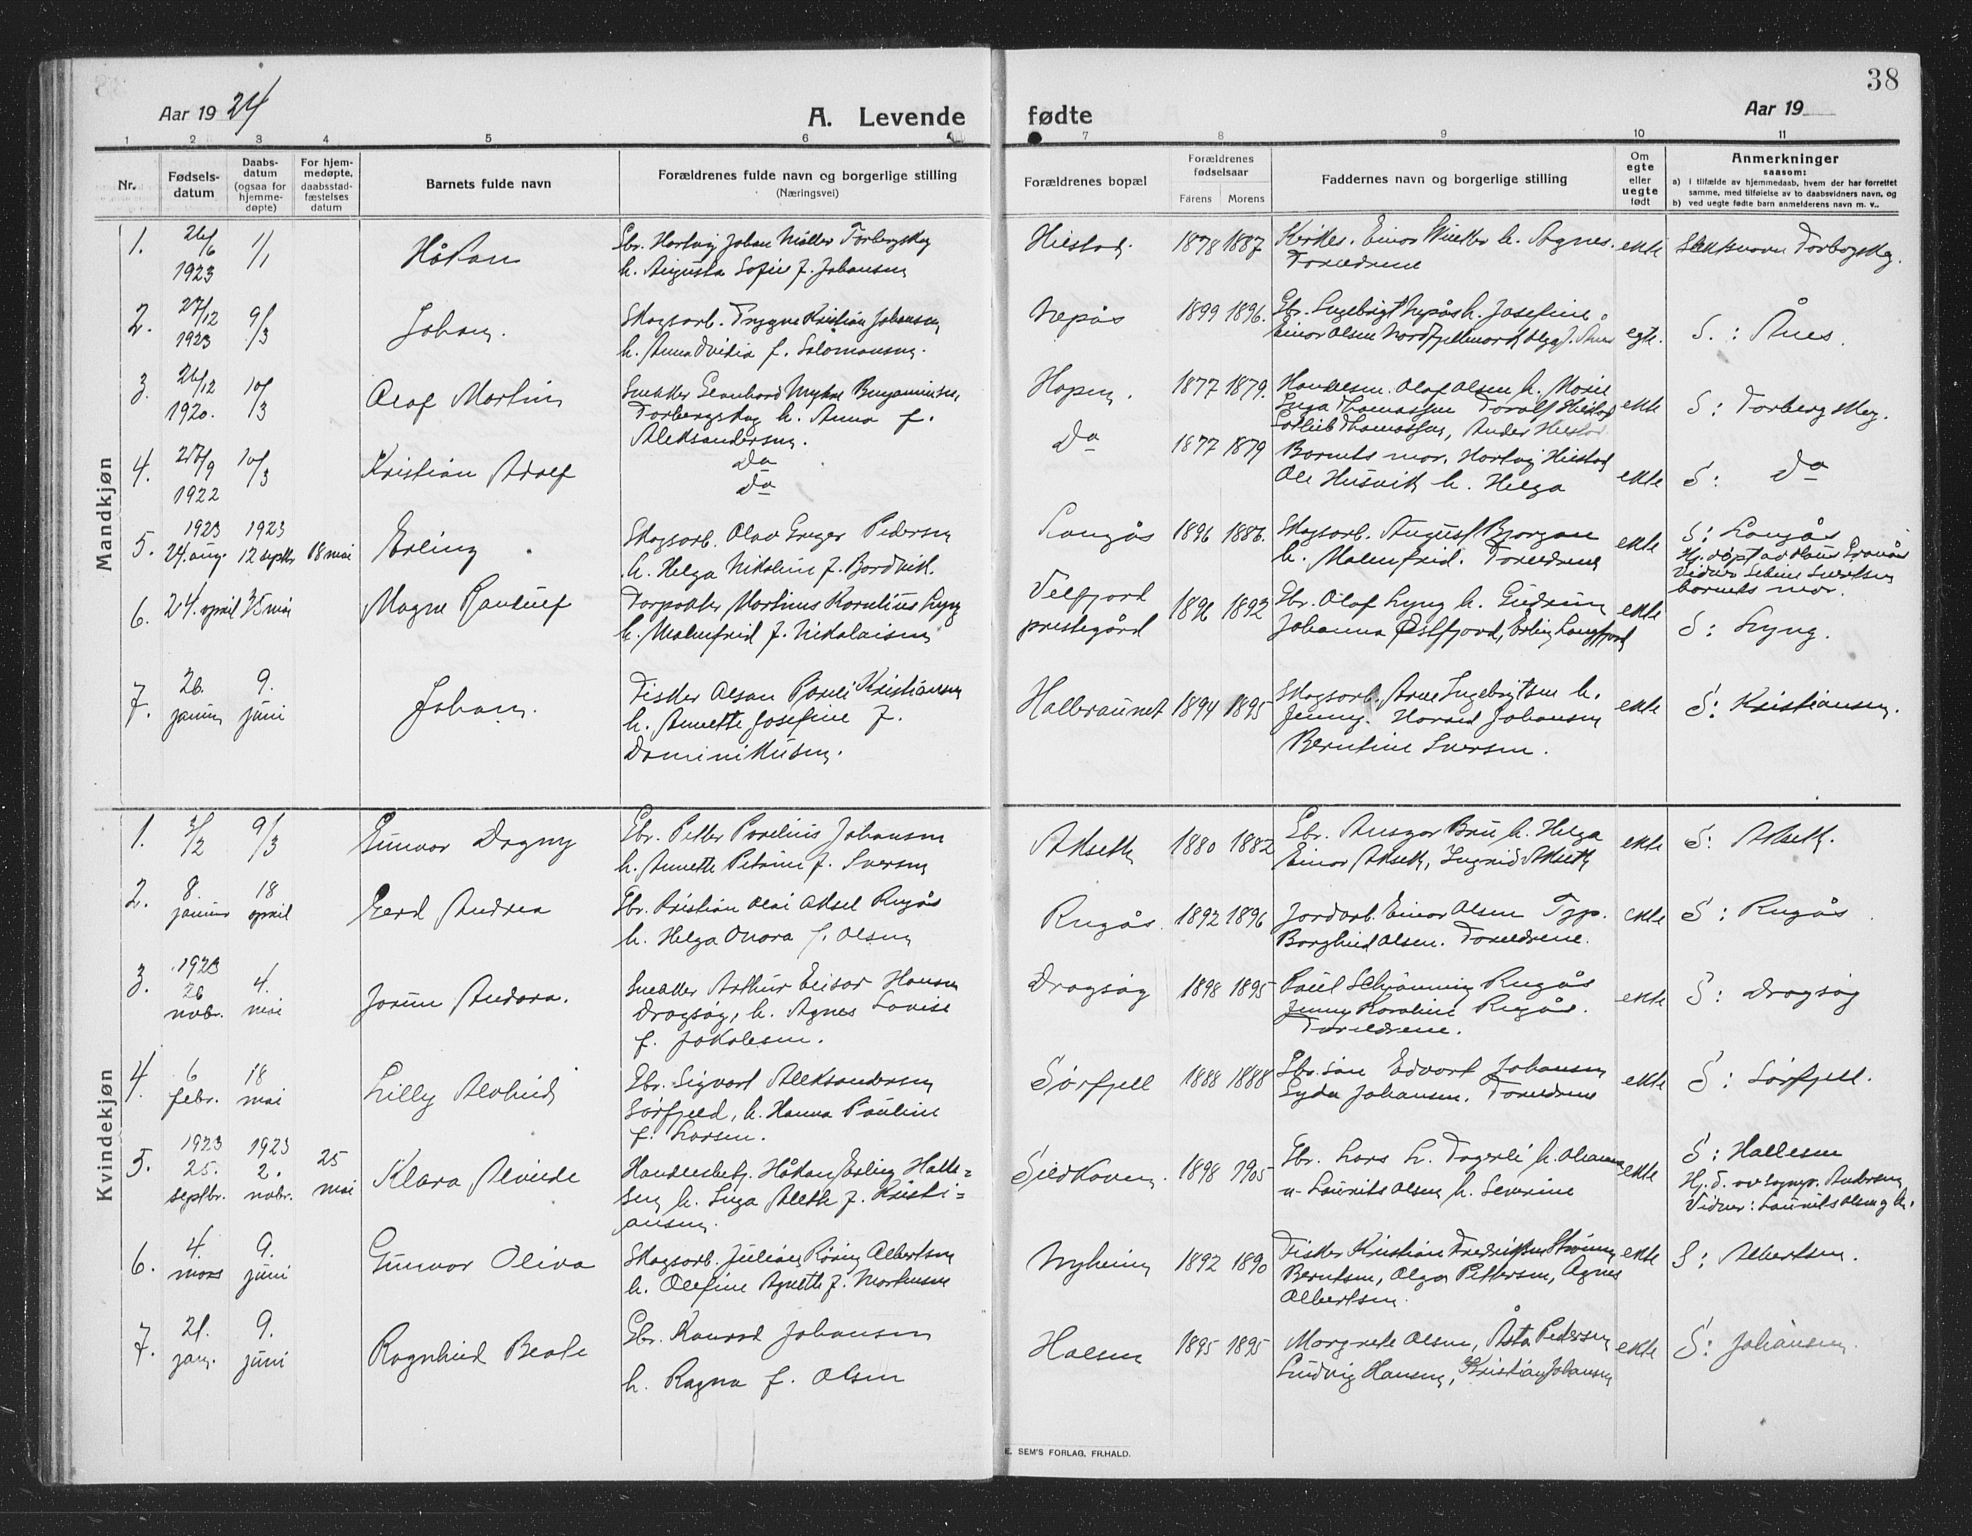 38
Aar 1924
A. Levende fødte
Aar 19
1 2 3 4 5 6 7 8 9 10 11
Nr.
Fødsels-datum
Daabs-datum (ogsaa for hjemme-døpte)
For hjem-medøpte, daabsstad-fæstelses datum
Barnets fulde navn
Forældrenes fulde navn og borgerlige stilling (Næringsvei)
Forældrenes bopæl
Forældrenes fødselsaar
Farens Morens
Faddernes navn og borgerlige stilling
Om egte eller uegte født
Anmerkninger saasom:
a) i tilfælde av hjemmedaab, hvem der har forrettet samme, med tilføielse av to daabsvidners navn, og
b) ved uegte fødte barn anmelderens navn m. v..
Mandkjøn
1. 26/6 1923 1/1 Håkon
Gbr. Hartvig Johan Møller Torbergskog
h. Augusta Sofie f. Johansen
Hilstad. 1878 1887.
Kirkes. Einar h. Agnes.
Foreldrene
ekte
Slektsnavn Torbergskog.
2. 27/12 1923 9/3 Johan.
Skogsarb. Trygve Kristian Johansen
h. Anna Ovidia f. Salomonsen.
Nepås 1899 1896.
Gbr. Ingebrigt Nepås h. Josefine
Einar Olsen
egte.
S. : Ånes.
3. 26/12 1920. 10/3 Olaf Martin
Snekker Leonhard Benjaminsen,
Torbergskog h. Anna f.
Aleksandersen.
Hopen. 1877 1879.
Handelsm. Olaf Olsen h.
Inga Thomassen Toralf Hilstad
Thomassen,
ekte
S : Torbergskog.
4. 27/9 1922 10/3 Kristian Adolf
Do
Do
Do 1877 1879
Barnets mor. Hartvig Hilstad
Ole Husvik h. Helga
ekte
S : Do
5. 1923 24. aug. 1923 12 septbr 18 mai Erling
Skogsarb. Olav Greger Pedersen
h. Helga Nikoline f. Bordvik.
Langås 1896 1886.
Skogsarb. August Bjorgan
h. Malmfrid. Foreldrene
ekte
S : Langås
Hj. døpt av
barnets mor.
6. 24. april 25 mai Magne Randulf
Forpakter Martinus Kornelius Lyng
h. Malmfrid f. Nikolaisen
Velfjord
prestegård 1896 1892
Gbr. Olaf Lyng h. Gudrun
Johanna Østfjord, Erling Langfjord
ekte
S : Lyng.
7. 26. januar 9. juni Johan.
Fisker Olsan Pauli Kristiansen
h. Annette Josefine f.
Dominikusen.
Halbraunet 1894 1895
Skogsarb. Arne Ingebrigtsen h.
Jenny. Harald Johansen
Berntine Iversen.
ekte
S : Kristiansen.
Kvindekjøn
1. 3/2 9/3 Gunvor Dagny
Gbr. Petter Parelius Johansen
h. Annette Petrine f. Iversen
Akseth 1880 1882
Gbr. Ansgar Bru h. Helga
Einar Akseth, Ingrid Akseth
ekte
S : Akseth.
2. 8. januar 18 april Gerd Andrea
Gbr. Kristian Olai Aksel Rugås
h. Helga Onara f. Olsen
Rugås. 1892 1896
Jordarb. Einar Olsen
Borghild Olsen. Foreldrene.
ekte
S : Rugås
3. 1923 26 novbr. 4. mai Jorun Andora.
Snekker Arthur Elisar Hansen
Dragsøg, h. Agnes Lovise
f. Jakobsen.
Dragsøg 1898 1895
Paul Schjønning Rugås
Jenny Karoline Rugås.
Foreldrene.
ekte
S : Dragsøg
4. 6 febr. 18 mai Lilly Alvhild
Gbr. Sigvart Aleksandersen
Sørfjeld, h. Hanna Pauline
f. Larsen.
Sørfjell 1888 1888
Gbr. søn Edvart Johansen
Lyder Johansen. Foreldrene
ekte
S : Sørfjell.
5. 1923 25. septbr. 1923 2. novbr. 25 mai Klara Alvilde
Handelsbetj. Håkon Erling Halle=
sen h. Inga Alette f. Kristi=
ansen.
Sildhaven. 1898 1905
Gbr. Lars L. Fagerli h. Olianna
u- Laurits Olsen h. Severine
ekte
S : Hallesen
Hj. d. av Andersen
Vidner : Laurits Olsen og h.
6. 4. mars 9. juni Gunvor Oliva
Skogsarb. Julian Røring Albertsen
h. Olefine Agnethe f. Mortensen
Nyheim 1892 1890
Fisker Kristian Fredriksen
Berntsen, Olga Pettersen, Agnes
Albertsen.
ekte
S : Albertsen.
7. 21. jan. 9. juni Ragnhild Beate
Gbr. Konrad Johansen
h. Ragna f. Olsen
Halsen 1895 1895
Margrete Olsen, Åsta Pedersen
Ludvig Hansen, Kristian Johansen
ekte
S : Johansen.
E. SEM'S FORLAG, FR.HALD.